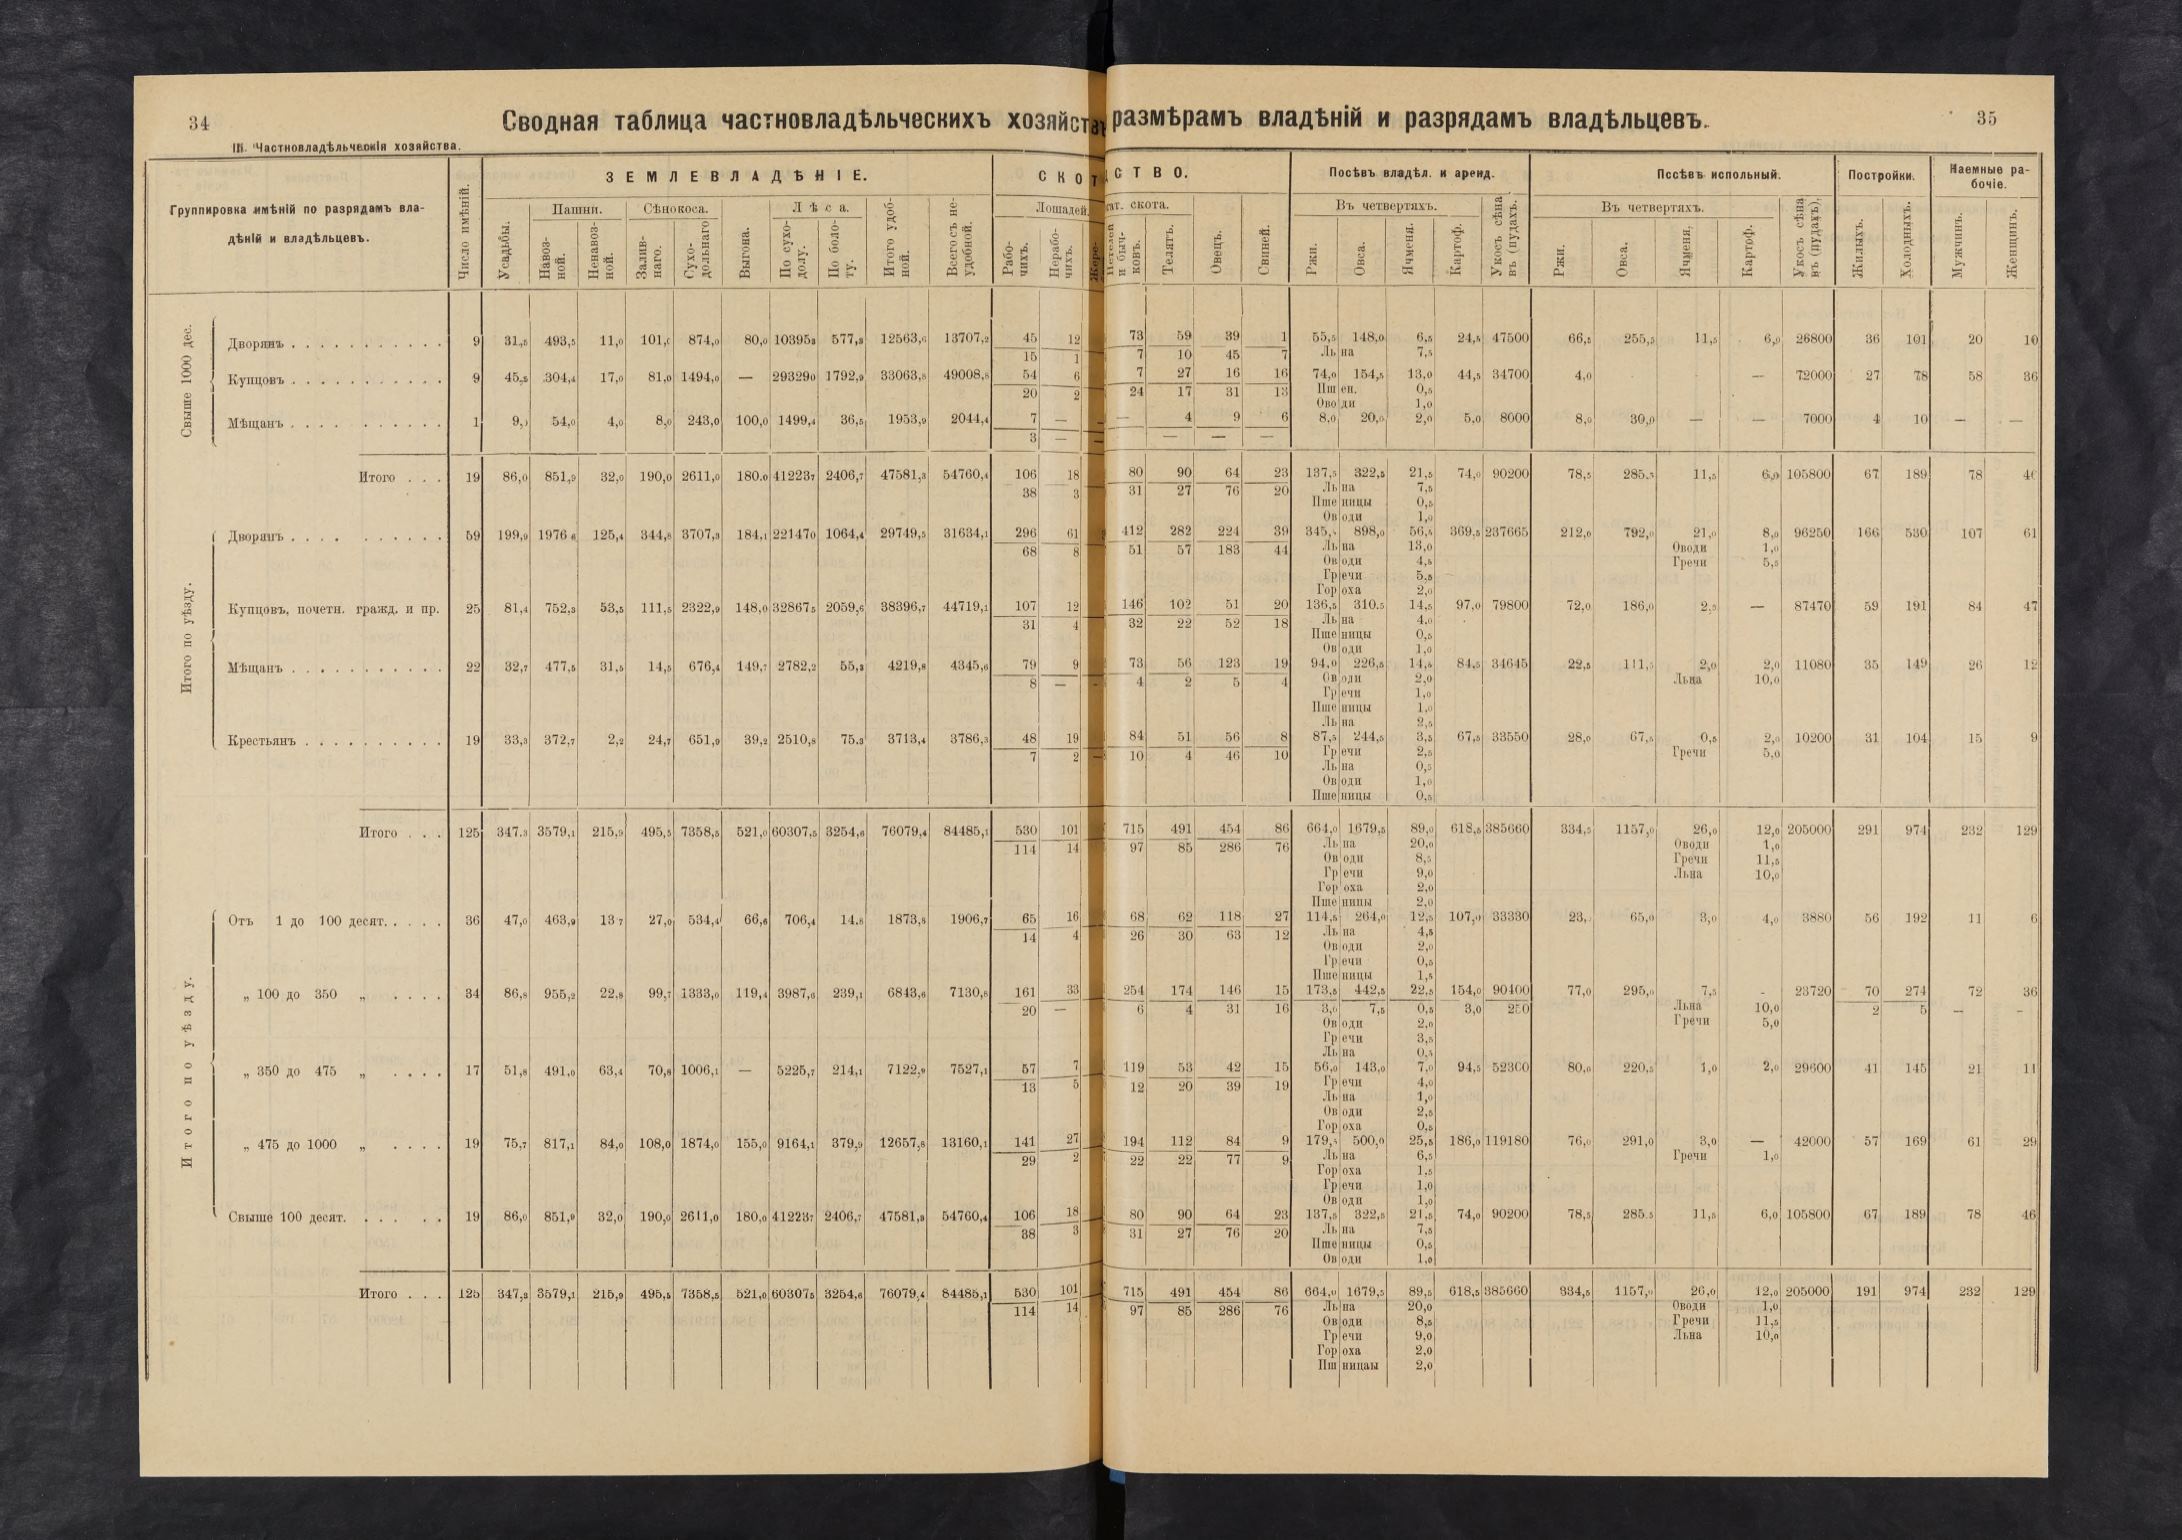 34
Сводная таблица частновладѣльческихъ хозяйствъ размѣрамъ владѣній и разрядамъ владѣльцевъ.
35
III. Частновладѣльческія хозяйства.
Группировка имѣній по разрядамъ вла-
дѣній и владѣльцевъ.
Число имѣній.
ЗЕМЛЕВЛАДѢНІЕ.
Усадьбы.
Пашни.
Навоз-
ной.
Ненавоз-
ной.
Сѣнокоса.
Залив-
наго.
Сухо-
дольнаго
Выгона.
Лѣса.
По сухо-
долу.
По боло-
ту.
Итого удоб-
ной.
Всего съ не-
удобной.
СКОТ
СТВО.
Лошадей.
Рабо-
чихъ.
Нерабо-
чихъ.
Жере-
гат. скота.
и быч-
ковъ.
Телятъ.
Овецъ.
Свиней.
Посѣвъ владѣл. и аренд.
Въ четвертяхъ.
Ржи.
Овса.
Ячменя.
Картоф.
Укосъ сѣна
въ (пудахъ).
Посѣвъ испольный.
Въ четвертяхъ.
Ржи.
Овса.
Ячменя,
Картоф.
Укосъ сѣна
въ (пудахъ).
Постройки.
Жилыхъ.
Холодныхъ.
Наемные ра-
бочіе.
Мужчинъ.
Женщинъ.
Свыше 1000 дес.
Дворянъ . . . . . . . . . . . 9 31,5 493,5 11,0 101,0 874,0 80,0 10395,3 577,3 12563,6 13707,2 45 12 73 59 39 1 55,5 148,0 6,5 24,5 47500 66,5 255,5 11,5 6,0 26800 36 101 20 10
15 1 7 10 45 7 Льна 7,5
Купцовъ . . . . . . . . . . . 9 45,5 304,4 17,0 81,0 1494,0 — 29329,0 1792,9 33063,8 49008,8 54 6 7 27 16 16 74,0 154,5 13,0 44,5 34700 4,0 — 72000 27 78 58 36
20 2 24 17 31 13 Пшен. 0,5
Оводи 1,0
Мѣщанъ . . . . . . . . . . 1 9, 54,0 4,0 8,0 243,0 100,0 1499,4 36,5 1953,9 2044,4 7 — — 4 9 6 8,0 20,0 2,0 5,0 8000 8,0 30,0 — — 7000 4 10 — —
3 — — — —
Итого . . . 19 86,0 851,9 32,0 190,0 2611,0 180,0 41223,7 2406,7 47581,3 54760,4 106 18 80 90 64 23 137,5 322,5 21,5 74,0 90200 78,5 285,5 11,5 6,0 105800 67 189 78 46
38 3 31 27 76 20 Льна 7,5
Пшеницы 0,5
Оводи 1,0
Итого по уѣзду.
Дворянъ . . . . . . . . . . 59 199,9 1976,6 125,4 344,8 3707,3 184,1 22147,0 1064,4 29749,5 31634,1 296 61 412 282 224 39 345, 898,0 56,5 369,5 237665 212,0 792,0 21,0 8,0 96250 166 530 107 61
68 8 51 57 183 44 Льна 13,0 Оводи 1,0
Оводи 4,5 Гречи 5,5
Гречи 5,5
Гороха 2,0
Купцовъ, почетн. гражд. и пр. 25 81,4 752,3 53,5 111,5 2322,9 148,0 32867,5 2059,6 38396,7 44719,1 107 12 146 102 51 20 136,5 310,5 14,5 97,0 79800 72,0 186,0 2,5 — 87470 59 191 84 47
31 4 32 22 52 18 Льна 4,0
Пшеницы 0,5
Оводи 1,0
Мѣщанъ . . . . . . . . . . . 22 32,7 477,5 31,5 14,5 676,4 149,7 2782,2 55,3 4219,8 4345,6 79 9 73 56 123 19 94,0 226,5 14,5 84,5 34645 22,5 111,5 2,0 2,0 11080 35 149 26 12
8 — 4 2 5 4 Оводи 2,0 Льна 10,0
Гречи 1,0
Пшеницы 1,0
Льна 2,5
Крестьянъ . . . . . . . . . . 19 33,3 372,7 2,2 24,7 651,9 39,2 2510,8 75,3 3713,4 3786,3 48 19 84 51 56 8 87,5 244,5 3,5 67,5 33550 28,0 67,5 0,5 2,0 10200 31 104 15 9
7 2 10 4 46 10 Гречи 2,5 Гречи 5,0
Льна 0,5
Оводи 1,0
Пшеницы 0,5
Итого . . . 125 347,3 3579,1 215,9 495,5 7358,5 521,0 60307,5 3254,6 76079,4 84485,1 530 101 715 491 454 86 664,0 1679,5 89,0 618,5 385660 334,5 1157,0 26,0 12,0 205000 291 974 232 129
114 14 97 85 286 76 Льна 20,0 Оводи 1,0
Оводи 8,5 Гречи 11,5
Гречи 9,0 Льна 10,0
Гороха 2,0
Пшеницы 2,0
Итого по уѣзду.
Отъ 1 до 100 десят. . . . . 36 47,0 463,9 13,7 27,0 534,4 66,6 706,4 14,8 1873,8 1906,7 65 16 68 62 118 27 114,5 264,0 12,5 107,0 33330 23, 65,0 3,0 4,0 3880 56 192 11 6
14 4 26 30 63 12 Льна 4,5
Оводи 2,0
Гречи 0,5
Пшеницы 1,5
„ 100 до 350 „ . . . . 34 86,8 955,2 22,8 99,7 1333,0 119,4 3987,6 239,1 6843,6 7130,6 161 33 254 174 146 15 173,5 442,5 22,5 154,0 90400 77,0 295,0 7,5 - 23720 70 274 72 36
20 — 6 4 31 16 3,0 7,5 0,5 3,0 250 Льна 10,0 2 5 — -
Оводи 2,0 Гречи 5,0
Гречи 3,5
Льна 0,5
„ 350 до 475 „ . . . . 17 51,8 491,0 63,4 70,8 1006,1 — 5225,7 214,1 7122,9 7527,1 57 7 119 53 42 15 56,0 143,0 7,0 94,5 52300 80,0 220,5 1,0 2,0 29600 41 145 21 11
13 5 12 20 39 19 Гречи 4,0
Льна 1,0
Оводи 2,5
Гороха 0,5
„ 475 до 1000 „ . . . . 19 75,7 817,1 84,0 108,0 1874,0 155,0 9164,1 379,9 12657,8 13160,1 141 27 194 112 84 9 179, 500,0 25,5 186,0 119180 76,0 291,0 3,0 — 42000 57 169 61 29
29 2 22 22 77 9 Льна 6,5 Гречи 1,0
Гороха 1,5
Гречи 1,0
Оводи 1,0
Свыше 100 десят. . . . . . 19 86,0 851,9 32,0 190,0 2611,0 180,0 41223,7 2406,7 47581,3 54760,4 106 18 80 90 64 23 137,5 322,5 21,5 74,0 90200 78,5 285,5 11,5 6,0 105800 67 189 78 46
38 3 31 27 76 20 Льна 7,5
Пшеницы 0,5
Оводи 1,0
Итого . . . 125 347,3 3579,1 215,9 495,5 7358,5 521,0 60307,5 3254,6 76079,4 84485,1 530 101 715 491 454 86 664,0 1679,5 89,5 618,5 385660 334,5 1157,0 26,0 12,0 205000 191 974 232 129
114 14 97 85 286 76 Льна 20,0 Оводи 1,0
Оводи 8,5 Гречи 11,5
Гречи 9,0 Льна 10,0
Гороха 2,0
Пшницаы 2,0